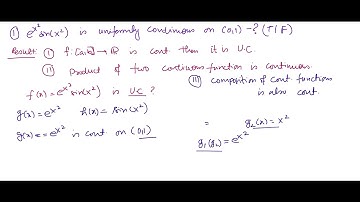 ① e^{x^2} sin(x^2) is uniformly continuous on (0,1) -? (T/F)
Result: Ⓘ f: [a,b] → ℝ is cont then it is U.C.
Ⓘⓘ Product of two continuous function is continuous.
f(x) = e^{x^2} sin(x^2) is UC ?
ⒾⒾⒾ composition of cont functions is also cont.
g(x) = e^{x^2} h(x) = sin(x^2)
g(x) = e^{x^2} is cont on (0,1)
= g_2(x) = x^2
g_1(g_2) = e^{x^2}